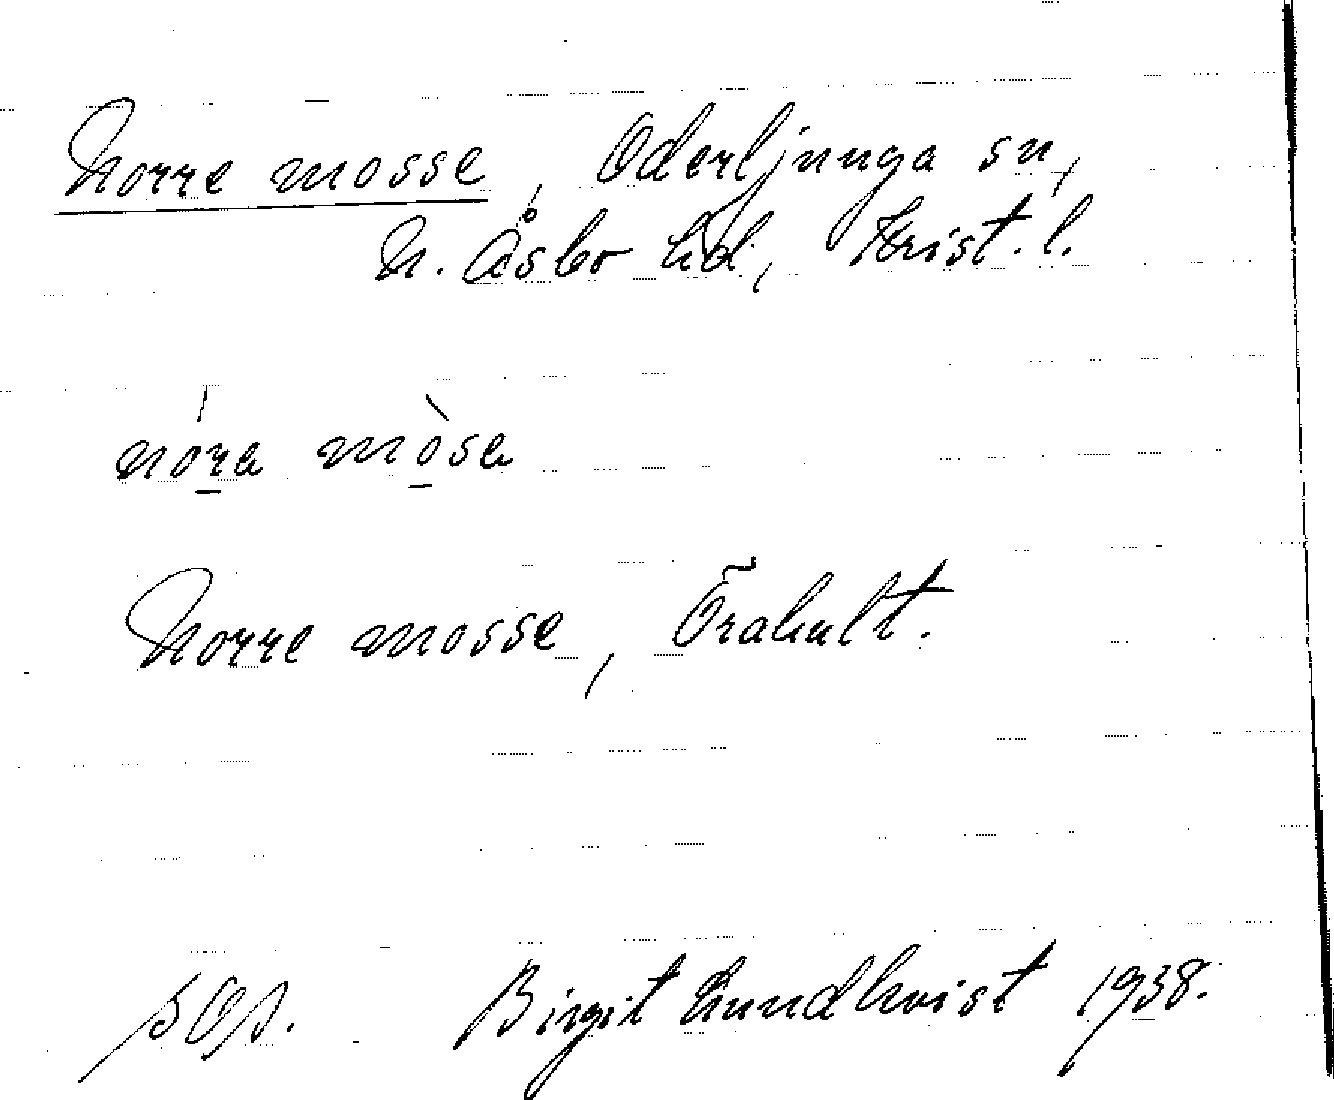 Norre mosse, Oderljunga sn,
N. Åsbo hd, Krist. l.
nóra mòsa
Norre mosse, Örahult.
Birgit Lundkvist 1938.